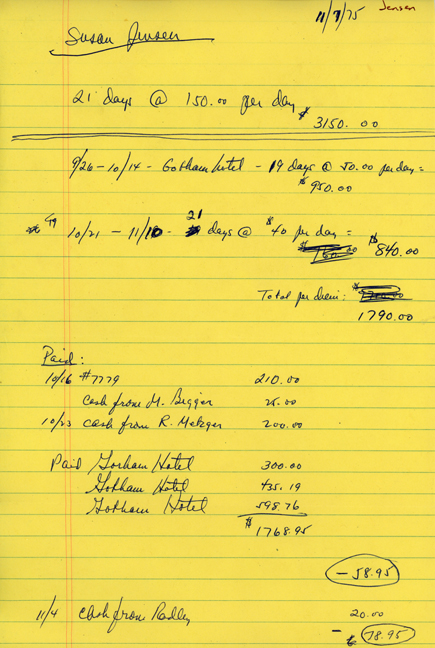 11/7/75 Jensen
Susan Jensen
21 days @ 150.00 per day
$ 3150.00
9/26 - 10/14 - Gotham hotel - 19 days @ 50.00 per day =
$ 950.00
21
10/21 - 11/10 - days @ $40 per day =
$ 840.00
Total per diem: $
1790.00
Paid:
10/16 #7779 210.00
Cash from M. Bigger 25.00
10/23 cash from R. Metzger 200.00
Paid Gorham Hotel 300.00
Gotham Hotel 435.19
Gotham Hotel 598.76
$ 1768.95
- 58.95
11/4 Cash from Radley 20.00
- 78.95